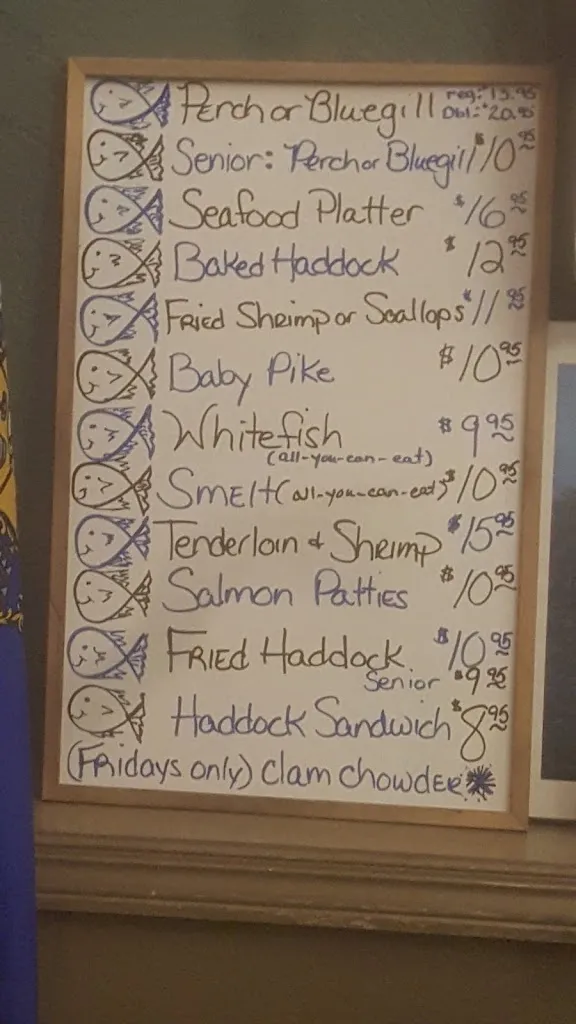 Perch or Bluegill reg: $15.95
Dbl: $20.95
Senior: Perch or Bluegill $10.95
Seafood Platter $16.95
Baked Haddock $12.95
Fried Shrimp or Scallops $11.95
Baby Pike $10.95
Whitefish $9.95
(all-you-can-eat)
Smelt (all-you-can-eat) $10.95
Tenderloin & Shrimp $15.95
Salmon Patties $10.95
Fried Haddock $10.95
Senior $9.95
Haddock Sandwich $8.95
(Fridays only) Clam Chowder